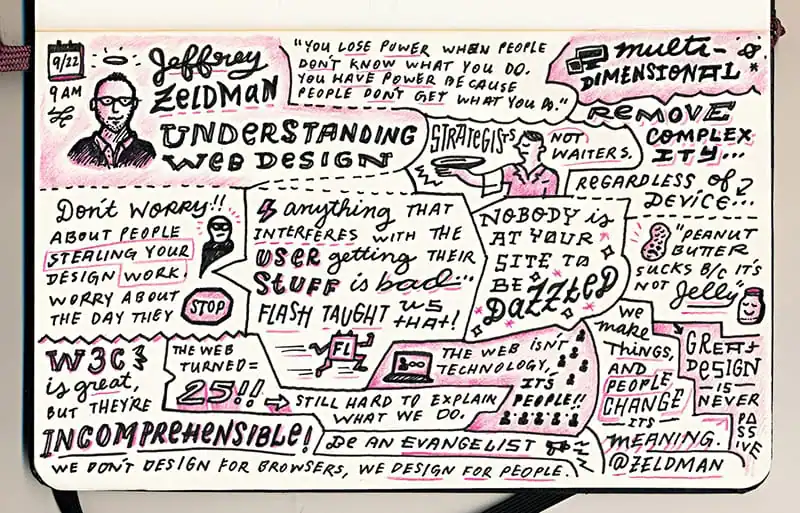 9/22
9 AM
Jeffrey
ZELDMAN
UNDERSTANDING
WEB DESIGN
"YOU LOSE POWER WHEN PEOPLE
DON'T KNOW WHAT YOU DO.
YOU HAVE POWER BECAUSE
PEOPLE DON'T GET WHAT YOU DO."
multi-
DIMENSIONAL
REMOVE
COMPLEX
ITY...
REGARDLESS OF
DEVICE...
STRATEGISTS
NOT
WAITERS.
DON'T WORRY!!
ABOUT PEOPLE
STEALING YOUR
DESIGN WORK.
WORRY ABOUT
THE DAY THEY
STOP
anything THAT
INTERFERES WITH THE
USER getting THEIR
STUFF is bad...
FLASH TAUGHT US
THAT!
FL
NOBODY is
AT YOUR
SITE TO
BE
DAZZLED
"PEANUT
BUTTER
SUCKS B/C IT'S
NOT Jelly"
W3C
is great,
BUT THEY'RE
INCOMPREHENSIBLE!
THE WEB
TURNED=
25!!
STILL HARD TO EXPLAIN
WHAT WE DO.
THE WEB ISN'T
TECHNOLOGY,
IT'S
PEOPLE!!
BE AN EVANGELIST
WE DON'T DESIGN FOR BROWSERS, WE DESIGN FOR PEOPLE.
we
make
THINGS,
AND
PEOPLE
CHANGE
ITS
MEANING.
@ZELDMAN
GREAT
DESIGN
IS
NEVER
PA
SS
IVE